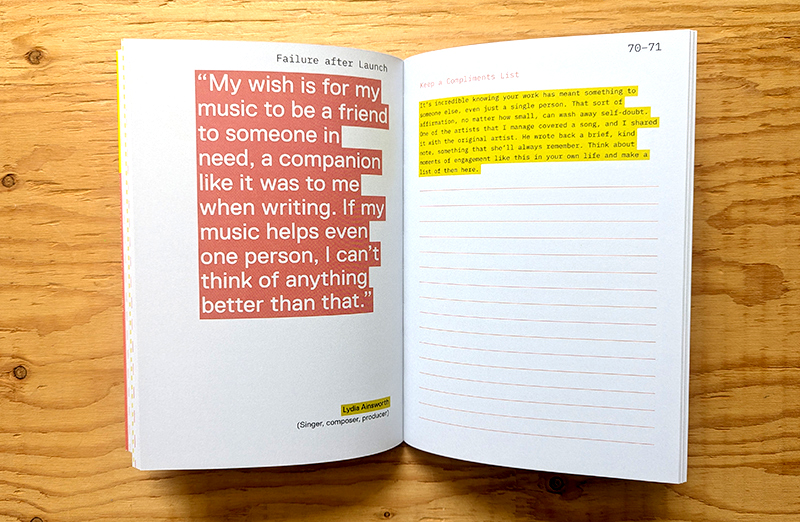 Failure after Launch
“My wish is for my
music to be a friend
to someone in
need, a companion
like it was to me
when writing. If my
music helps even
one person, I can’t
think of anything
better than that.”
Lydia Ainsworth
(Singer, composer, producer)
70–71
Keep a Compliments List
It's incredible knowing your work has meant something to
someone else, even just a single person. That sort of
affirmation, no matter how small, can wash away self-doubt.
One of the artists that I manage covered a song, and I shared
it with the original artist. He wrote back a brief, kind
note, something that she'll always remember. Think about
moments of engagement like this in your own life and make a
list of then here.